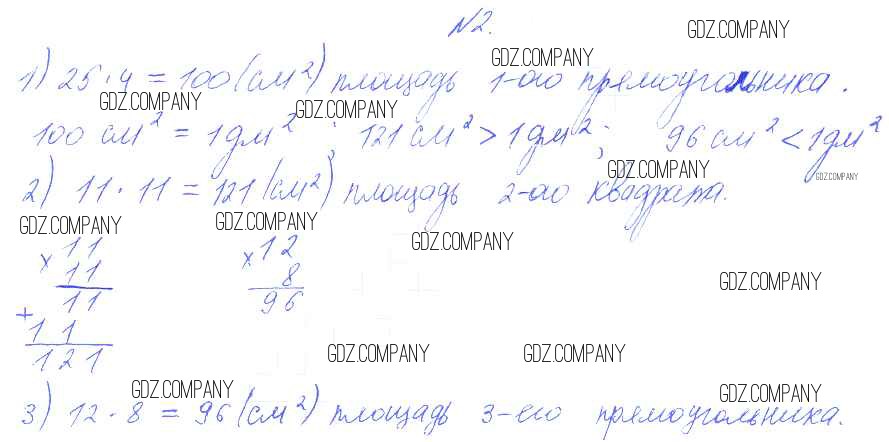 №2. GDZ.COMPANY
GDZ.COMPANY
1) 25 · 4 = 100 (см²) площадь 1-ого прямоугольника.
GDZ.COMPANY GDZ.COMPANY
100 см² = 1 дм² ; 121 см² > 1 дм² ; 96 см² < 1 дм²
GDZ.COMPANY GDZ.COMPANY
2) 11 · 11 = 121 (см²) площадь 2-ого квадрата.
GDZ.COMPANY GDZ.COMPANY GDZ.COMPANY
× 11 × 12
11 8 GDZ.COMPANY
11 96
+
11 GDZ.COMPANY GDZ.COMPANY
121
GDZ.COMPANY GDZ.COMPANY
3) 12 · 8 = 96 (см²) площадь 3-его прямоугольника.